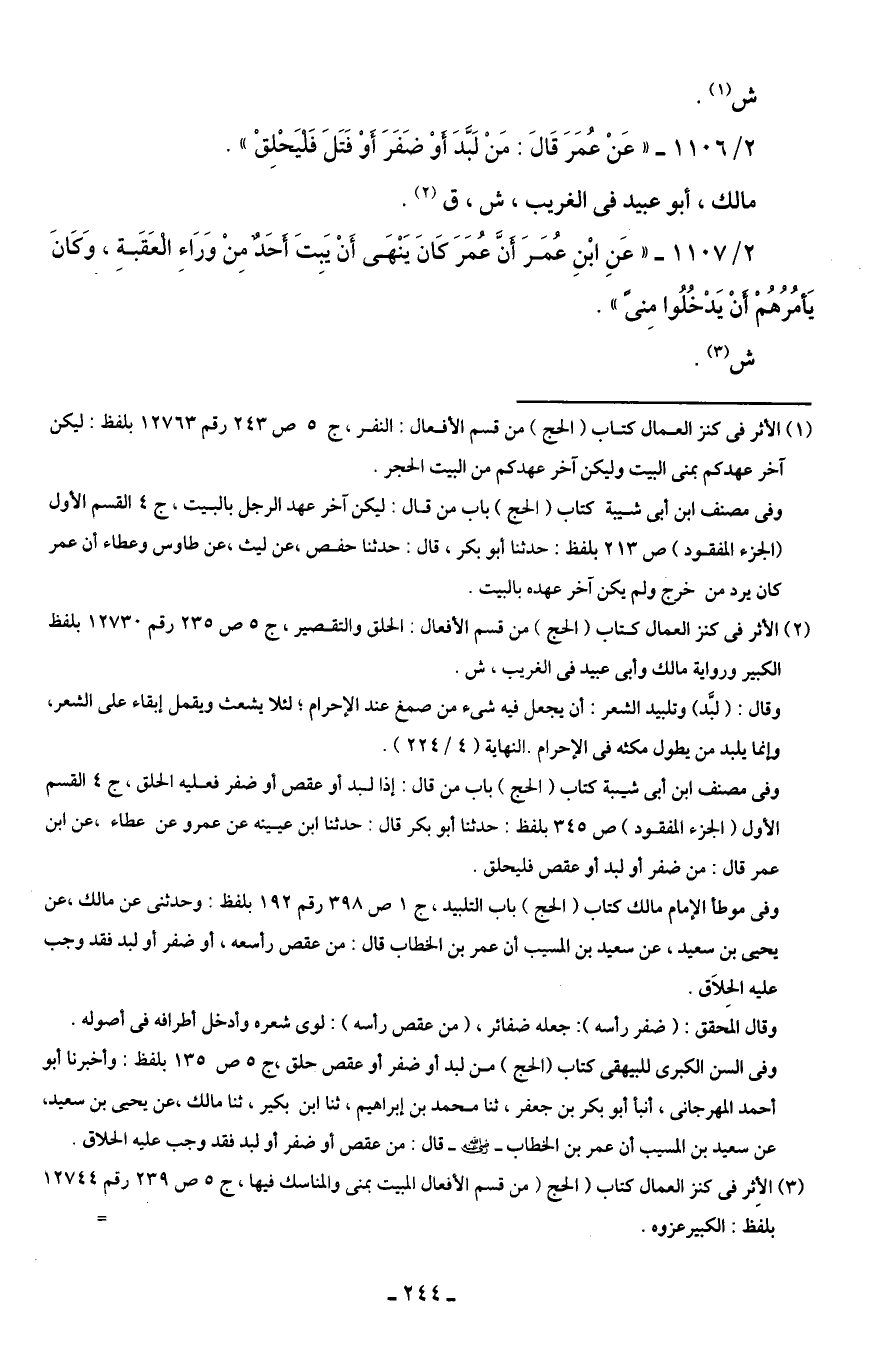 ش(١) .
٢/ ١١٠٦ ـ « عَنْ عُمَرَ قَالَ : مَنْ لَبَّدَ أَوْ ضَفَرَ أَوْ فَتَلَ فَلْيَحْلِقْ » .
مالك ، أبو عبيد فى الغريب ، ش ، ق (٢) .
٢/ ١١٠٧ ـ « عَنِ ابْنِ عُمَـرَ أَنَّ عُمَرَ كَانَ يَنْهَـى أَنْ يَبِيتَ أَحَدٌ مِنْ وَرَاءِ الْعَقَبَـةِ ، وَكَانَ
يَأمُرُهُمْ أَنْ يَدْخُلُوا مِنىً » .
ش(٣) .
(١) الأثر فى كنز العـمال كتـاب ( الحج ) من قسم الأفـعال : النفـر ، ج ٥ ص ٢٤٣ رقم ١٢٧٦٣ بلفظ : ليكن
آخر عهدكم بمنى البيت وليكن آخر عهدكم من البيت الحجر .
وفى مصنف ابن أبى شـيبة كتاب ( الحج ) باب من قـال : ليكن آخر عهد الرجل بالبـيت ، ج ٤ القسم الأول
(الجزء المفقـود ) ص ٢١٣ بلفظ : حدثنا أبو بكر ، قال : حدثنا حفـص ،عن ليث ،عن طاوس وعطاء أن عمر
كان يرد من خرج ولم يكن آخر عهده بالبيت .
(٢) الأثر فى كنز العمال كـتاب ( الحج ) من قسم الأفعال : الحلق والتقـصير ، ج ٥ ص ٢٣٥ رقم ١٢٧٣٠ بلفظ
الكبير ورواية مالك وأبى عبيد فى الغريب ، ش .
وقال : ( لبَّد) وتلبيد الشعر : أن يجعل فيه شىء من صمغ عند الإحرام ؛ لئلا يشعث ويقمل إبقاء على الشعر،
وإنما يلبد من يطول مكثه فى الإحرام .النهاية ( ٤ / ٢٢٤ ) .
وفى مصنف ابن أبى شيـبة كتاب ( الحج ) باب من قال : إذا لـبد أو عقص أو ضفر فعـليه الحلق ، ج ٤ القسم
الأول ( الجزء المفقـود ) ص ٣٤٥ بلفظ : حدثنا أبو بكر قال : حدثنا ابن عيـينه عن عمرو عن عطاء ،عن ابن
عمر قال : من ضفر أو لبد أو عقص فليحلق .
وفى موطأ الإمام مالك كتاب ( الحج ) باب التلبيد ، ج ١ ص ٣٩٨ رقم ١٩٢ بلفظ : وحدثنى عن مالك ،عن
يحيى بن سعيد ، عن سعيد بن المسيب أن عمر بن الخطاب قال : من عقص رأسعه ، أو ضفر أو لبد فقد وجب
عليه الحِلاَق .
وقال المحقق : ( ضفر رأسه ): جعله ضفائر ، ( من عقص رأسه ) : لوى شعره وأدخل أطرافه فى أصوله .
وفى السن الكبرى للبيهقى كتاب (الحج ) مـن لبد أو ضفر أو عقص حلق ،ج ٥ ص ١٣٥ بلفظ : وأخبرنا أبو
أحمد المهرجانى ، أنبأ أبو بكر بن جعفر ، ثنا مـحمد بن إبراهيم ، ثنا ابن بكير ، ثنا مالك ،عن يحيى بن سعيد،
عن سعيد بن المسيب أن عمر بن الخطاب ـ ﷺ ـ قال : من عقص أو ضفر أو لبد فقد وجب عليه الحلاق .
(٣) الأثر فى كنز العمال كتاب ( الحج ( من قسم الأفعال المبيت بمنى والمناسك فيها ، ج ٥ ص ٢٣٩ رقم ١٢٧٤٤
بلفظ : الكبيرعزوه . =
ـ ٢٤٤ ـ